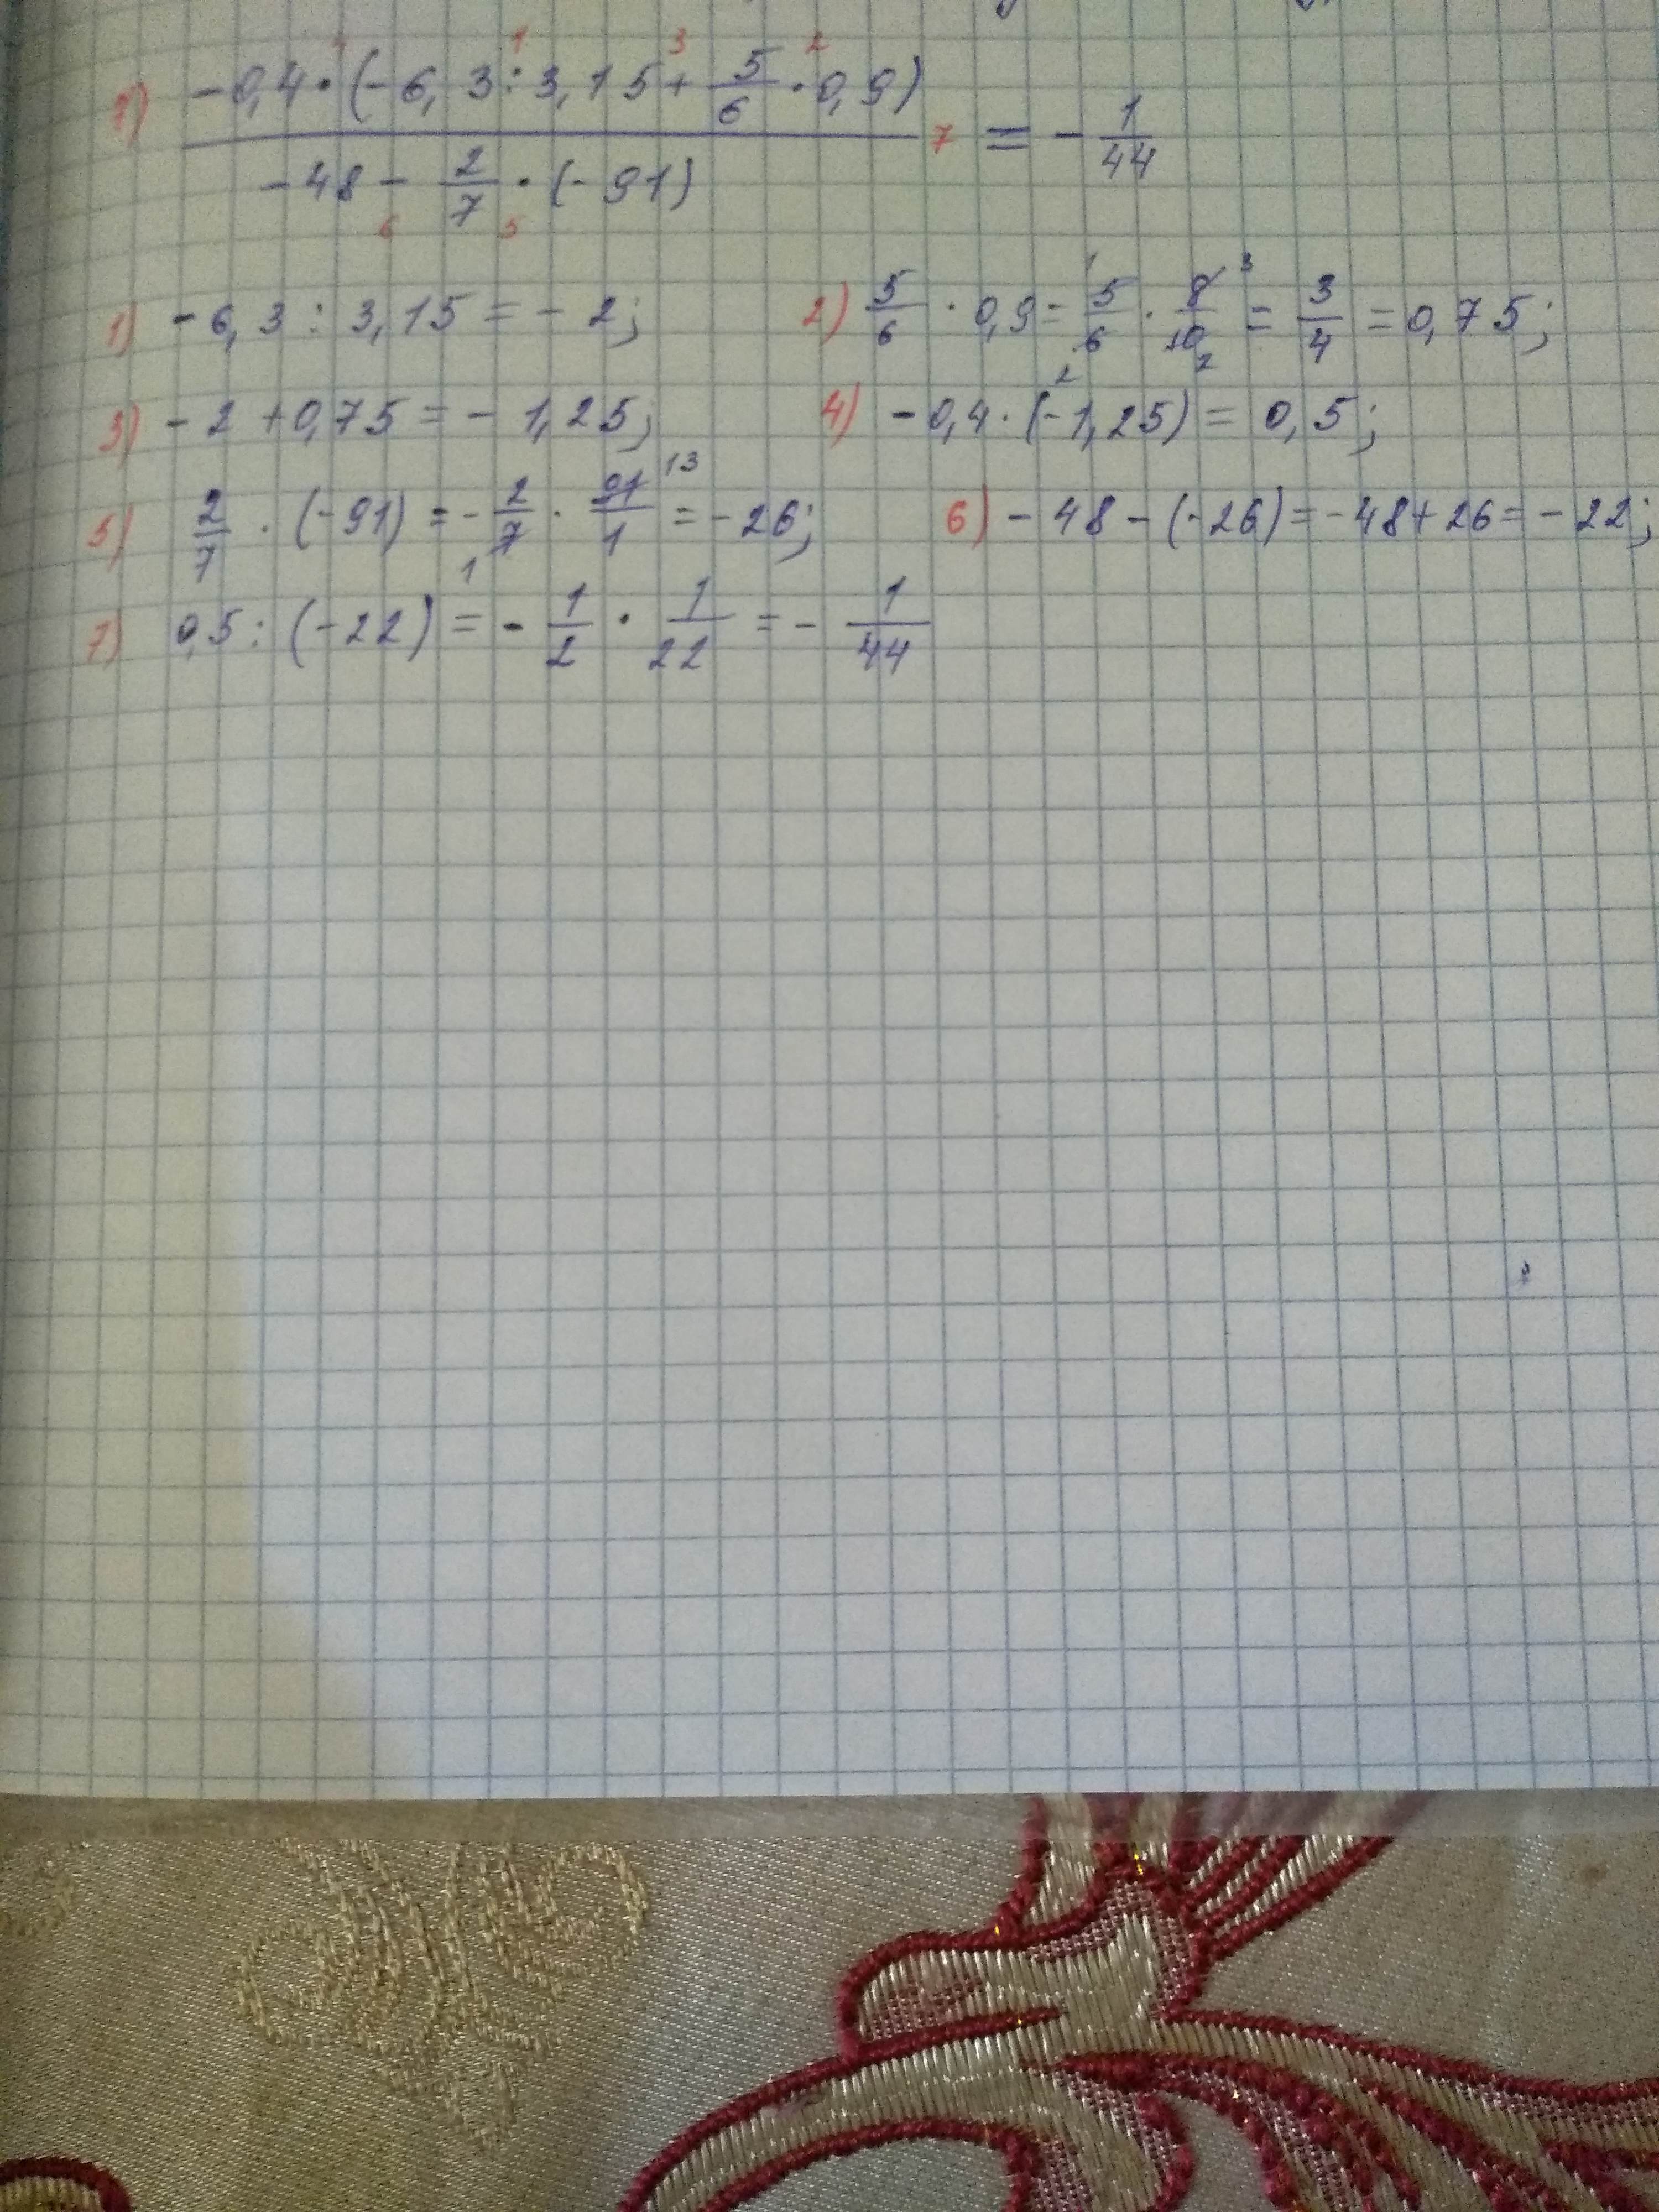 4 1 3 2
7) -0,4·(-6,3:3,15+5/6·0,9)
/ 7 = -1/44
-48-2/7·(-91)
6 5
1) -6,3:3,15=-2; 2) 5/6·0,9=5/6·9/10=3/4=0,75;
3) -2+0,75=-1,25; 4) -0,4·(-1,25)=0,5;
5) 2/7·(-91)=-2/7·91/1=-26; 6) -48-(-26)=-48+26=-22;
7) 0,5:(-22)=-1/2·1/22=-1/44